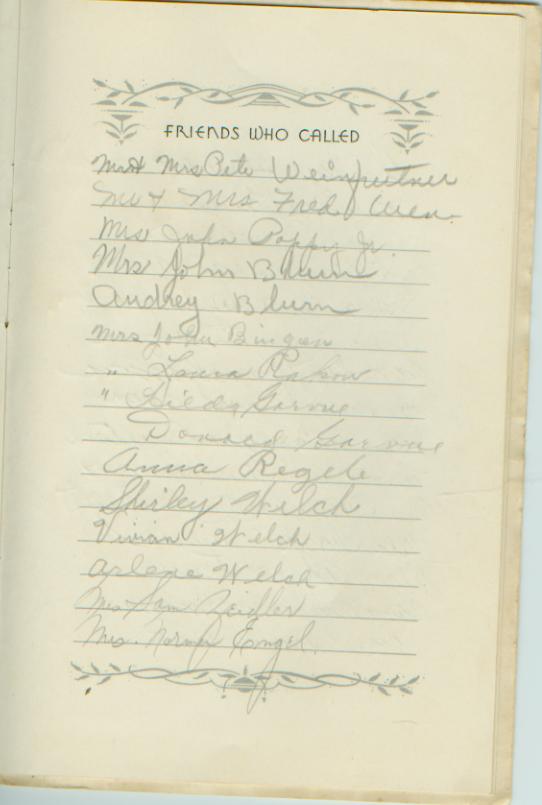 FRIENDS WHO CALLED
Mr & Mrs Pete Weinfurtner
Mr & Mrs Fred
Mrs John Poppy Jr.
Mrs John Blum
Audrey Blum
Mrs John Bingen
" Laura Rakow
" Hilda Garvue
Donald Garvue
Anna Regele
Shirley Welch
Vivian Welch
Arlene Welch
Mrs Sam Zeidler
Mrs. Norma Engel